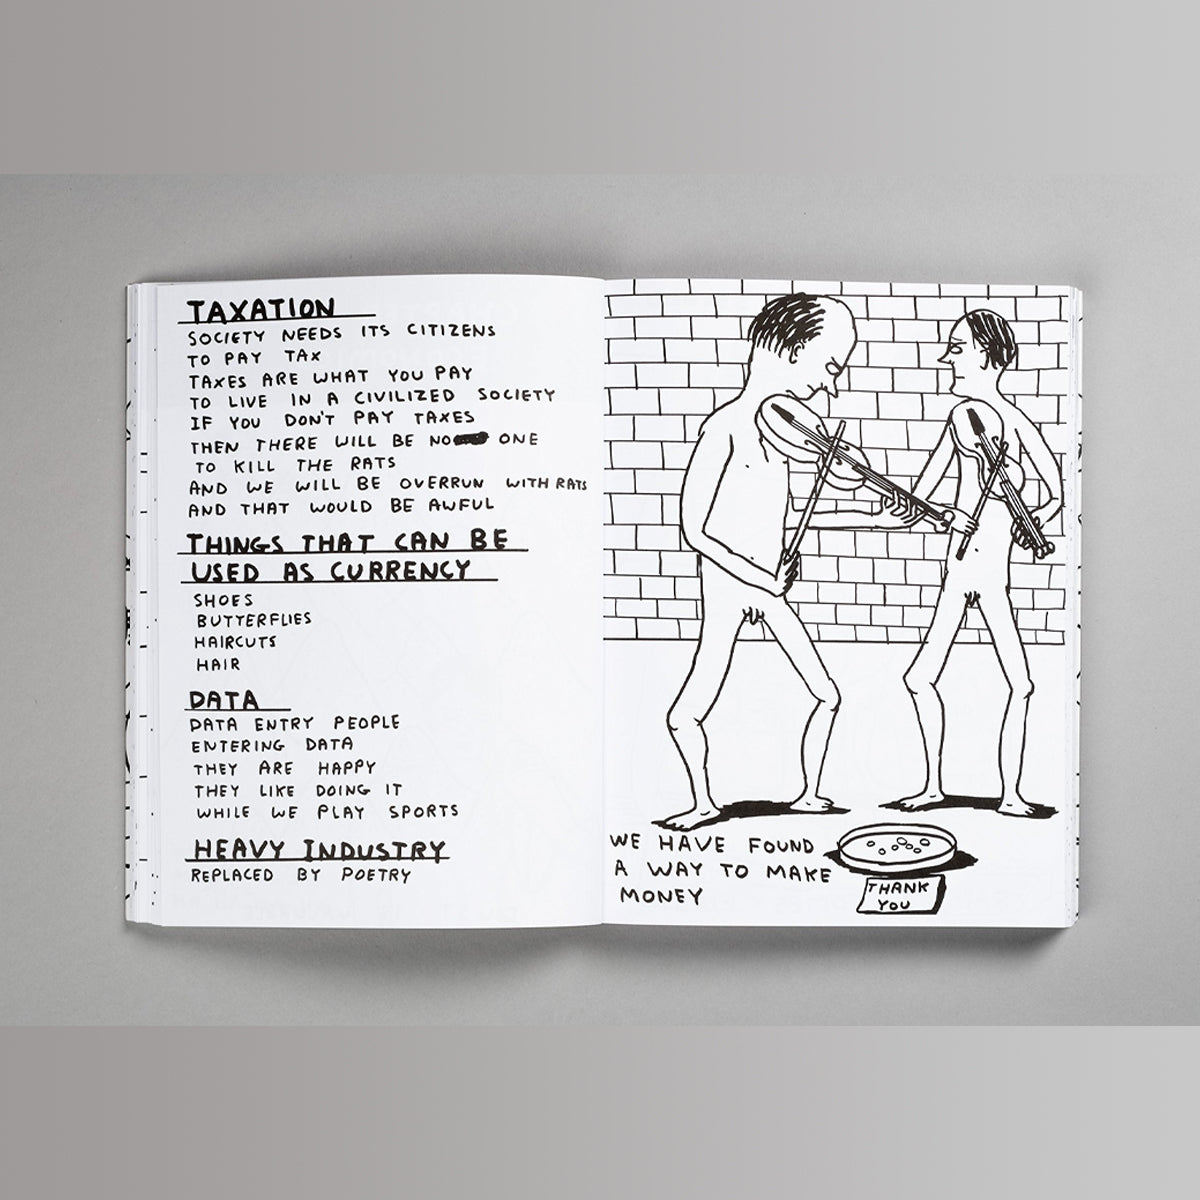 TAXATION
SOCIETY NEEDS ITS CITIZENS
TO PAY TAX
TAXES ARE WHAT YOU PAY
TO LIVE IN A CIVILIZED SOCIETY
IF YOU DON'T PAY TAXES
THEN THERE WILL BE NO ONE
TO KILL THE RATS
AND WE WILL BE OVERRUN WITH RATS
AND THAT WOULD BE AWFUL
THINGS THAT CAN BE
USED AS CURRENCY
SHOES
BUTTERFLIES
HAIRCUTS
HAIR
DATA
DATA ENTRY PEOPLE
ENTERING DATA
THEY ARE HAPPY
THEY LIKE DOING IT
WHILE WE PLAY SPORTS
HEAVY INDUSTRY
REPLACED BY POETRY
WE HAVE FOUND
A WAY TO MAKE
MONEY
THANK
YOU